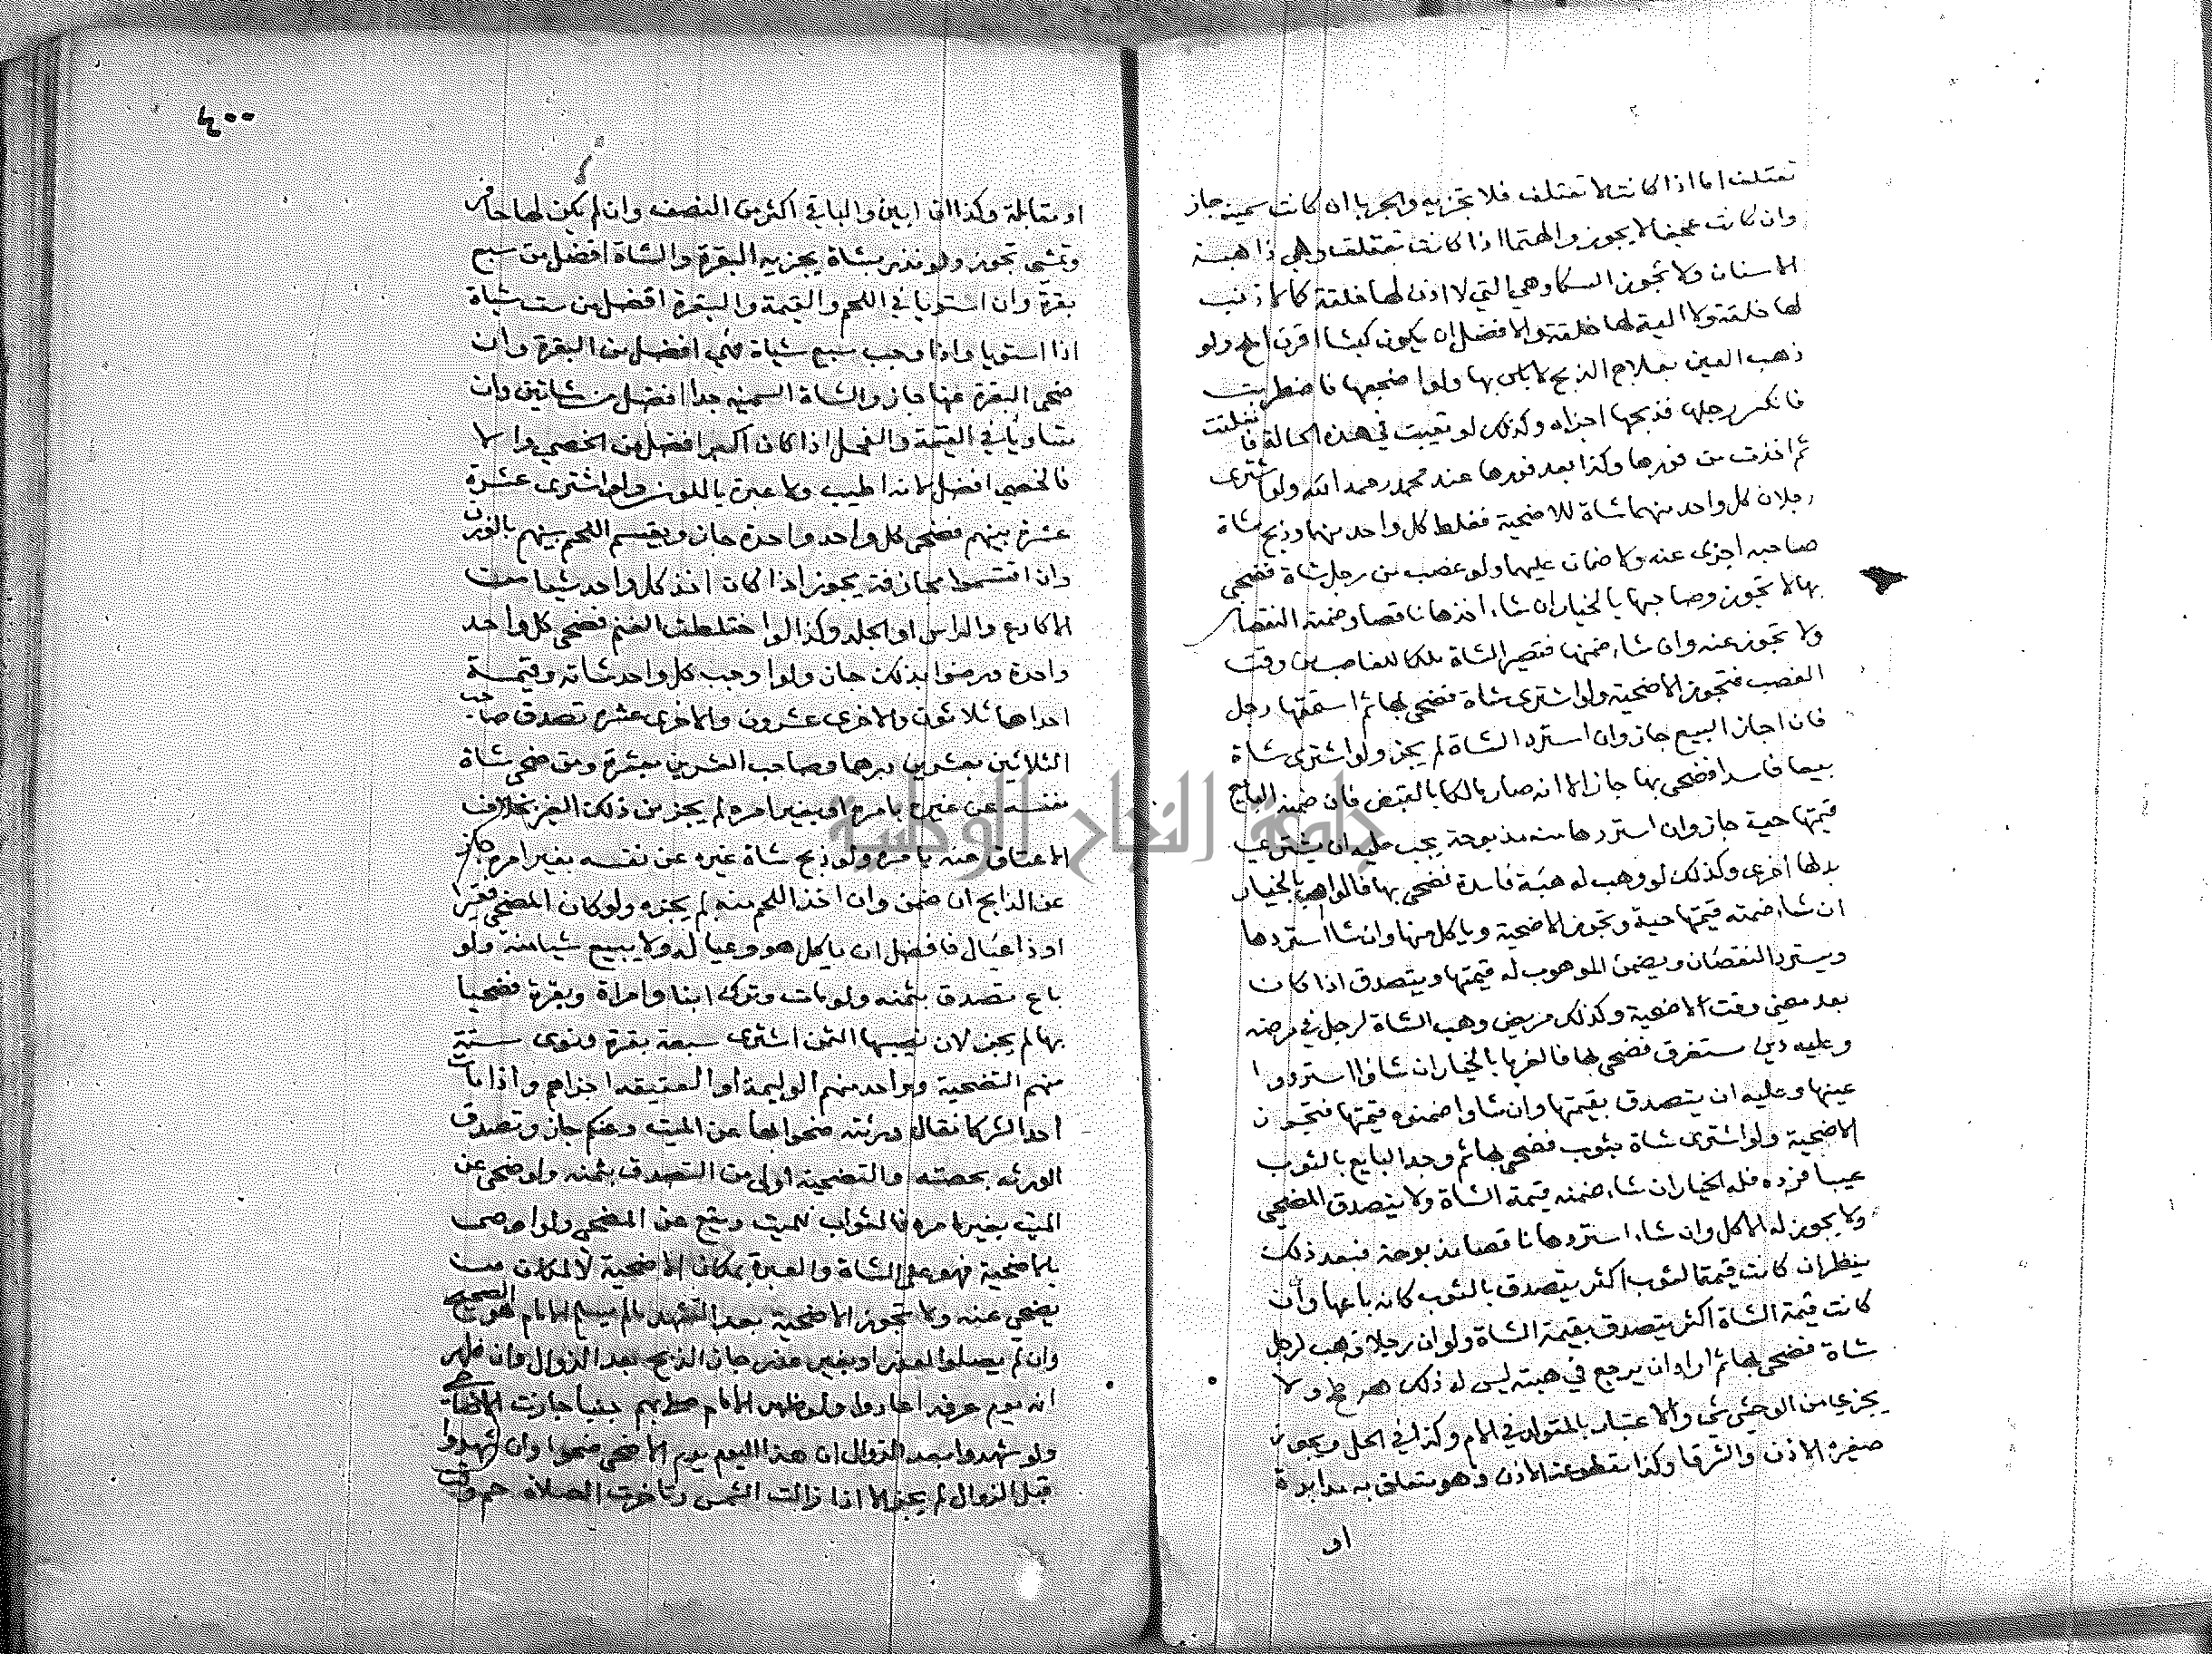 تعتلف اما اذا كانت لا تعتلف فلا تجزيه والجربا ان كانت سمينة جاز
وان كانت عجفا لا يجوز والهتما اذا كانت تعتلف وهي ذاهبة
الاسنان ولا تجوز السكا وهي التي لا اذن لها خلقة كالا ذنب
لها خلقة ولا الية لها خلقة والافضل ان يكون كبشا اقرن املح ولو
ذهب العين بعلاج الذبح لا باس بها ولو اضجعها فاضطربت
فانكسر رجلها فذبحها اجزاه وكذلك لو تعيبت في هذه الحالة فانفلتت
ثم اخذت من فورها وكذا بعد فورها عند محمد رحمه الله ولو اشترى
رجلان كل واحد منهما شاة للاضحية فغلط كل واحد منهما وذبح شاة
صاحبه اجزى عنه ولا ضمان عليهما ولو غصب من رجل شاة فضحى
بها لا تجوز وصاحبها بالخيار ان شاء اخذها ناقصا وضمنه النقصان
ولا تجوز عنه وان شاء ضمنها فتصير الشاة ملكا للغاصب من وقت
الغصب فتجوز الاضحية ولو اشترى شاة فضحى بها ثم استحقها رجل
فان اجاز البيع جاز وان استرد الشاة لم يجز ولو اشترى شاة
بيعا فاسدا فضحى بها جاز الا انه صار مالكا بالقبض فان ضمنه البايع
قيمتها حية جاز وان استردها منه مذبوحة يجب عليه ان يشتري
بدلها اخرى وكذلك لو وهب له هبة فاسدة فضحى بها فالواهب بالخيار
ان شاء ضمنه قيمتها حية وتجوز الاضحية وياكل منها وان شا استردها
ويسترد النقصان ويضمن الموهوب له قيمتها ويتصدق اذا كان
بعد مضي وقت الاضحية وكذلك مريض وهب الشاة لرجل في مرضه
وعليه دين مستغرق فضحى بها فالغرما بالخيار ان شاؤا استردوا
عينها وعليه ان يتصدق بقيمتها وان شاوا ضمنوه قيمتها فتجوز
الاضحية ولو اشترى شاة بثوب فضحى بها ثم وجد البايع بالثوب
عيبا فرده فله الخيار ان شاء ضمنه قيمة الشاة ولا يتصدق المضحي
ولا يجوز له الاكل وان شاء استردها ناقصا مذبوحة فبعد ذلك
ينظر ان كانت قيمة الثوب اكثر يتصدق بالثوب كانه باعها وان
كانت قيمة الشاة اكثر يتصدق بقيمة الشاة ولو ان رجلا وهب لرجل
شاة فضحى بها ثم اراد ان يرجع في هبته ليس له ذلك ولا
يجزي من الوحشي شي والاعتبار بالمتولد في الام وكذا في الحل ويجوز
صغيرة الاذن والشرقا وكذا مقطوعة الاذن وهو متعلق به مدابرة
او
٤٠٠
او مقابلة وكذا ان ابين والباقي اكثر من النصف وان لم يكن لها حافر
وتمشي تجوز ولو نذر بشاة يجزيه البقرة والشاة افضل من سبع
بقرة وان استويا في اللحم والقيمة والبقرة افضل من ست شياة
اذا استويا واذا وجب سبع شياة فهي افضل من البقرة وان
ضحى البقرة عنها جاز والشاة السمينه جدا افضل من شاتين وان
تساويا في القيمة والفحل اذا كان اكبر افضل من الخصي والا
فالخصي افضل لانه اطيب ولا عبرة باللون ولو اشترى عشرة
عشرة بينهم فضحى كل واحد واحدة جاز ويقسم اللحم بينهم بالوزن
وان اقتسموا مجازفة يجوز اذا كان اخذ كل واحد شيا من
الاكارع والراس او الجلد وكذا لو اختلطت الغنم فضحى كل واحد
واحدة ورضوا بذلك جاز ولو اوجب كل واحد شاته وقيمة
احداها ثلاثون والاخرى عشرون والاخرى عشرة تصدق صاحب
الثلاثين بعشرين درهما وصاحب العشرين بعشرة ومن ضحى شاة
نفسه عن غيره بامره او بغير امره لم يجز من ذلك الغير بخلاف
الاعتاق عنه بامره ولو ذبح شاة غيره عن نفسه بغير امره جاز
عن الذابح ان ضمن وان اخذ اللحم منه لم يجزه ولو كان المضحي فقيرا
او ذا عيال فافضل ان ياكل هو وعياله ولا يبيع شيا منه ولو
باع تصدق بثمنه ولو مات وترك ابنا وامراة وبقرة فضحيا
بها لم يجز لان نصيبها الثمن اشترى سبعة بقرة ونوى ستة
منهم التضحية وواحد منهم الوليمة او العقيقه اجزاهم واذا مات
احد الشركا فقال ورثته ضحوا بها عن الميت وعنكم جاز وتصدق
الورثه بحصته والتضحية اولى من التصدق بثمنه ولو ضحى عن
الميت بغير امره فالثواب للميت ويقع عن المضحي ولو اوصى
بالاضحية فهو على الشاة والعبرة بمكان الاضحية لا لمكان من
يضحي عنه ولا تجوز الاضحية بعد التشهد مالم يسلم الامام هو الصحيح
وان لم يصلوا لعذر او بغير عذر جاز الذبح بعد الزوال وان ظهر
انه يوم عرفه اعادوا ولو ظهر الامام صلى بهم جنبا جازت الاضحية
ولو شهدوا بعد الزوال ان هذا اليوم يوم الاضحى ضحوا وان شهدوا
قبل الزوال لم يجز الا اذا زالت الشمس وتاخرت الصلاة
جامعة النجاح الوطنية